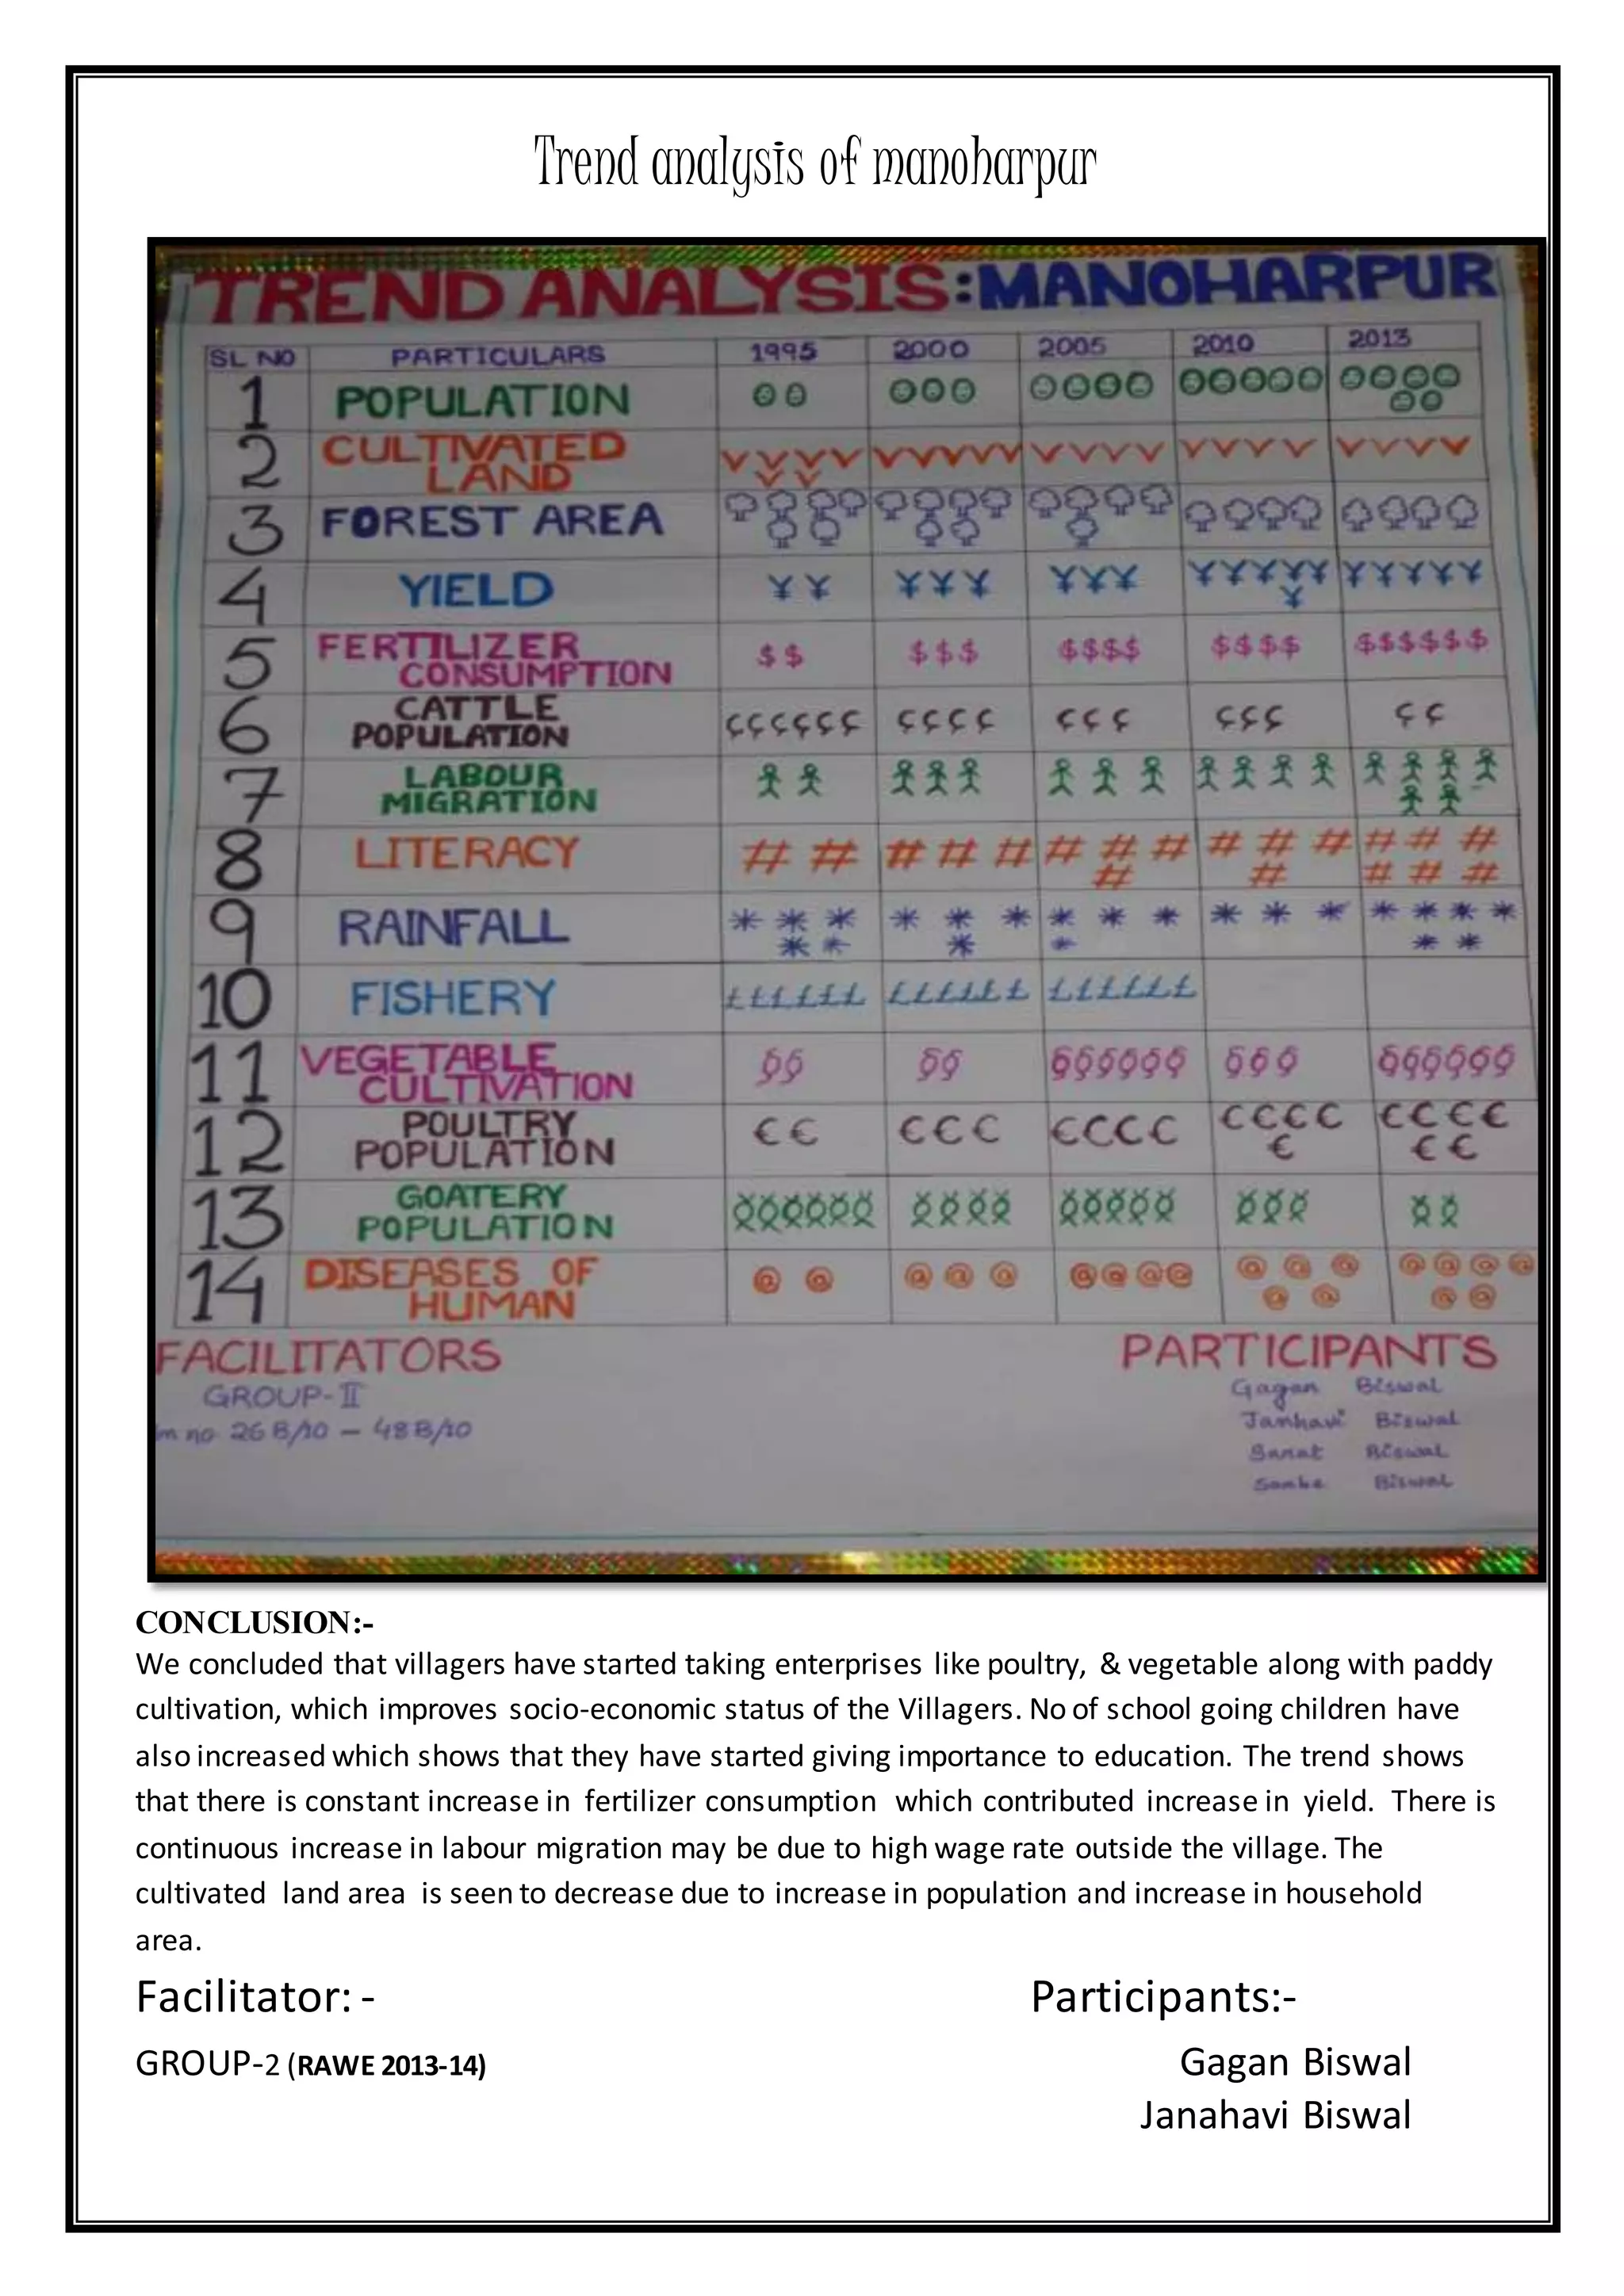 Trend analysis of manoharpur
TREND ANALYSIS:MANOHARPUR
SL NO PARTICULARS 1995 2000 2005 2010 2013
1 POPULATION
2 CULTIVATED
LAND
3 FOREST AREA
4 YIELD ¥¥ ¥¥¥ ¥¥¥ ¥¥¥¥¥ ¥¥¥¥¥
¥
5 FERTILIZER
CONSUMPTION $$ $$$ $$$$ $$$$ $$$$$$
6 CATTLE
POPULATION
7 LABOUR
MIGRATION
8 LITERACY # # # # # # # # # # # # # #
# # # # #
9 RAINFALL * * * * * * * * * * * * * * * *
* * * * * *
10 FISHERY ££££££ ££££££ ££££££
11 VEGETABLE
CULTIVATION
12 POULTRY
POPULATION €€ €€€ €€€€ €€€€ €€€€
€ €€
13 GOATERY
POPULATION
14 DISEASES OF
HUMAN @ @ @ @ @ @@@@ @ @ @ @ @ @ @
@ @ @ @
FACILITATORS PARTICIPANTS
GROUP-II Gagan Biswal
no 26B/10 – 48B/10 Janhavi Biswal
Sanat Biswal
Biswal
CONCLUSION:-
We concluded that villagers have started taking enterprises like poultry, & vegetable along with paddy
cultivation, which improves socio-economic status of the Villagers. No of school going children have
also increased which shows that they have started giving importance to education. The trend shows
that there is constant increase in fertilizer consumption which contributed increase in yield. There is
continuous increase in labour migration may be due to high wage rate outside the village. The
cultivated land area is seen to decrease due to increase in population and increase in household
area.
Facilitator: - Participants:-
GROUP-2 (RAWE 2013-14) Gagan Biswal
Janahavi Biswal